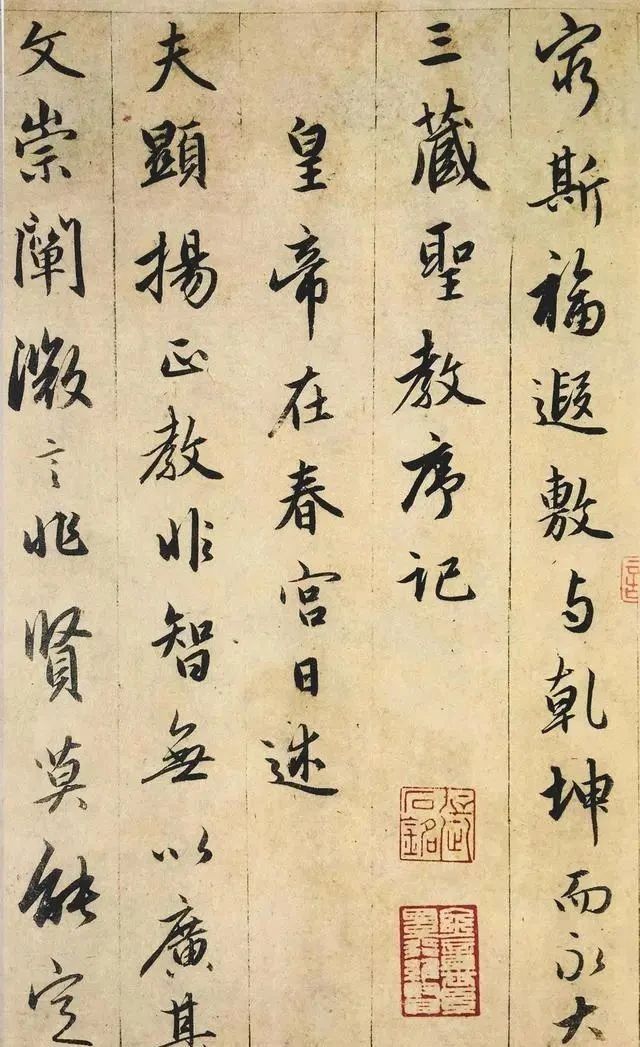 窮斯福遐敷与乾坤而永大
三藏聖教序記
皇帝在春宮日述
夫顯揚正教非智無以廣其
文崇闡微言非賢莫能定